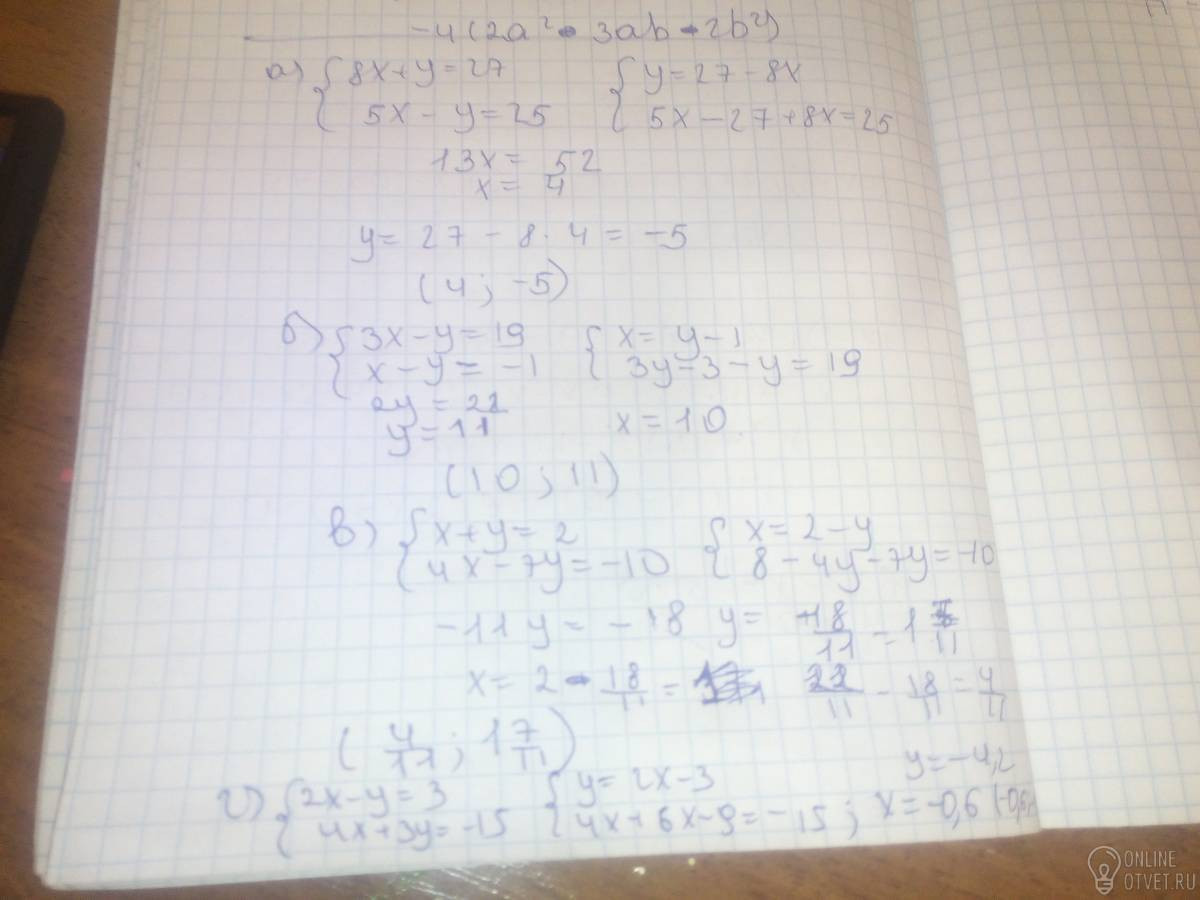 -4(2a² - 3ab - 2b²)
а) { 8x+y=27 { y=27-8x
5x-y=25 5x-27+8x=25
13x= 52
x= 4
y= 27 - 8·4 = -5
(4; -5)
б) { 3x-y=19 { x= y-1
x-y= -1 3y-3-y=19
2y = 22
y=11 x=10
(10; 11)
в) { x+y= 2 { x=2-y
4x-7y=-10 8-4y-7y=-10
-11y= -18 y= 18/11 = 1 7/11
x= 2 - 18/11 = 22/11 - 18/11 = 4/11
(4/11; 1 7/11)
y=-4,2
г) { 2x-y=3 { y=2x-3
4x+3y=-15 4x+6x-9=-15; x=-0,6 (-0,6
ONLINE
OTVET.RU